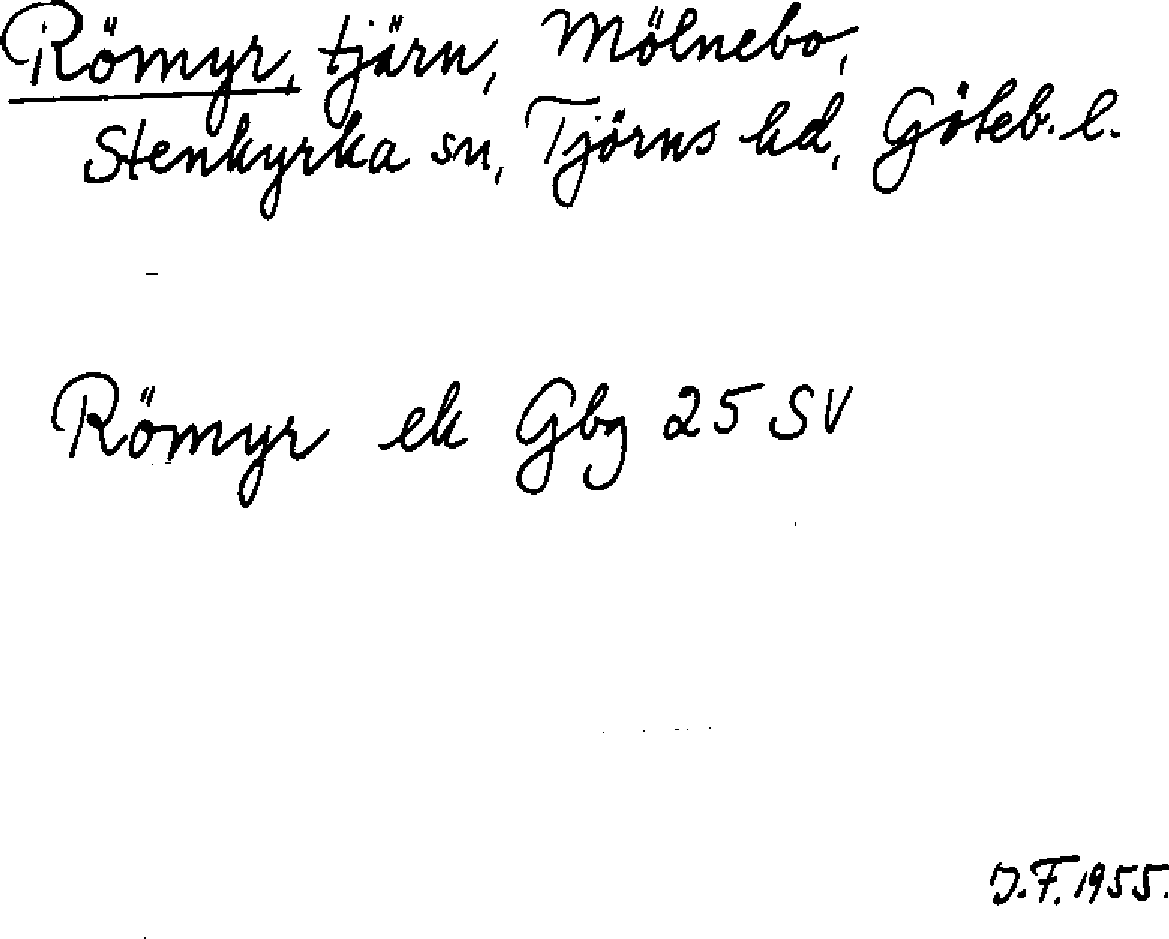 Römyr, tjärn, Mölnebo,
Stenkyrka sn, Tjörns hd, Göteb. l.
Römyr ek Gbg 25 SV
D.F. 1955.